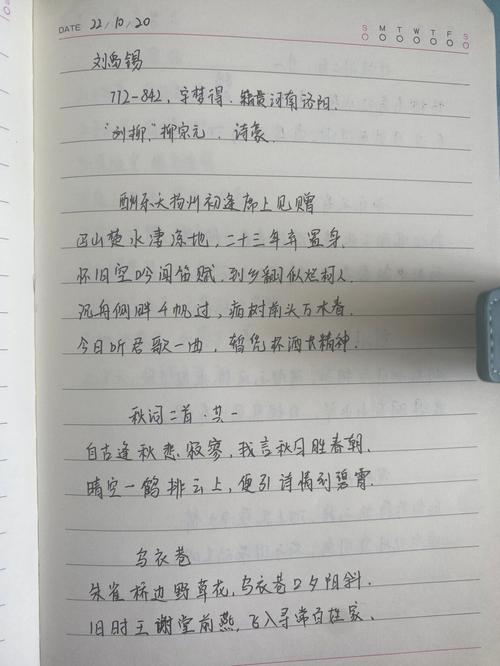 DATE 22/10/20 S M T W T F S
刘禹锡
772-842,字梦得.籍贯河南洛阳.
"刘柳,"柳宗元.诗豪.
酬乐天扬州初逢席上见赠
巴山楚水凄凉地,二十三年弃置身.
怀旧空吟闻笛赋,到乡翻似烂柯人.
沉舟侧畔千帆过,病树前头万木春.
今日听君歌一曲,暂凭杯酒长精神.
秋词二首·其一
自古逢秋悲寂寥,我言秋日胜春朝.
晴空一鹤排云上,便引诗情到碧霄.
乌衣巷
朱雀桥边野草花,乌衣巷口夕阳斜.
旧时王谢堂前燕,飞入寻常百姓家.